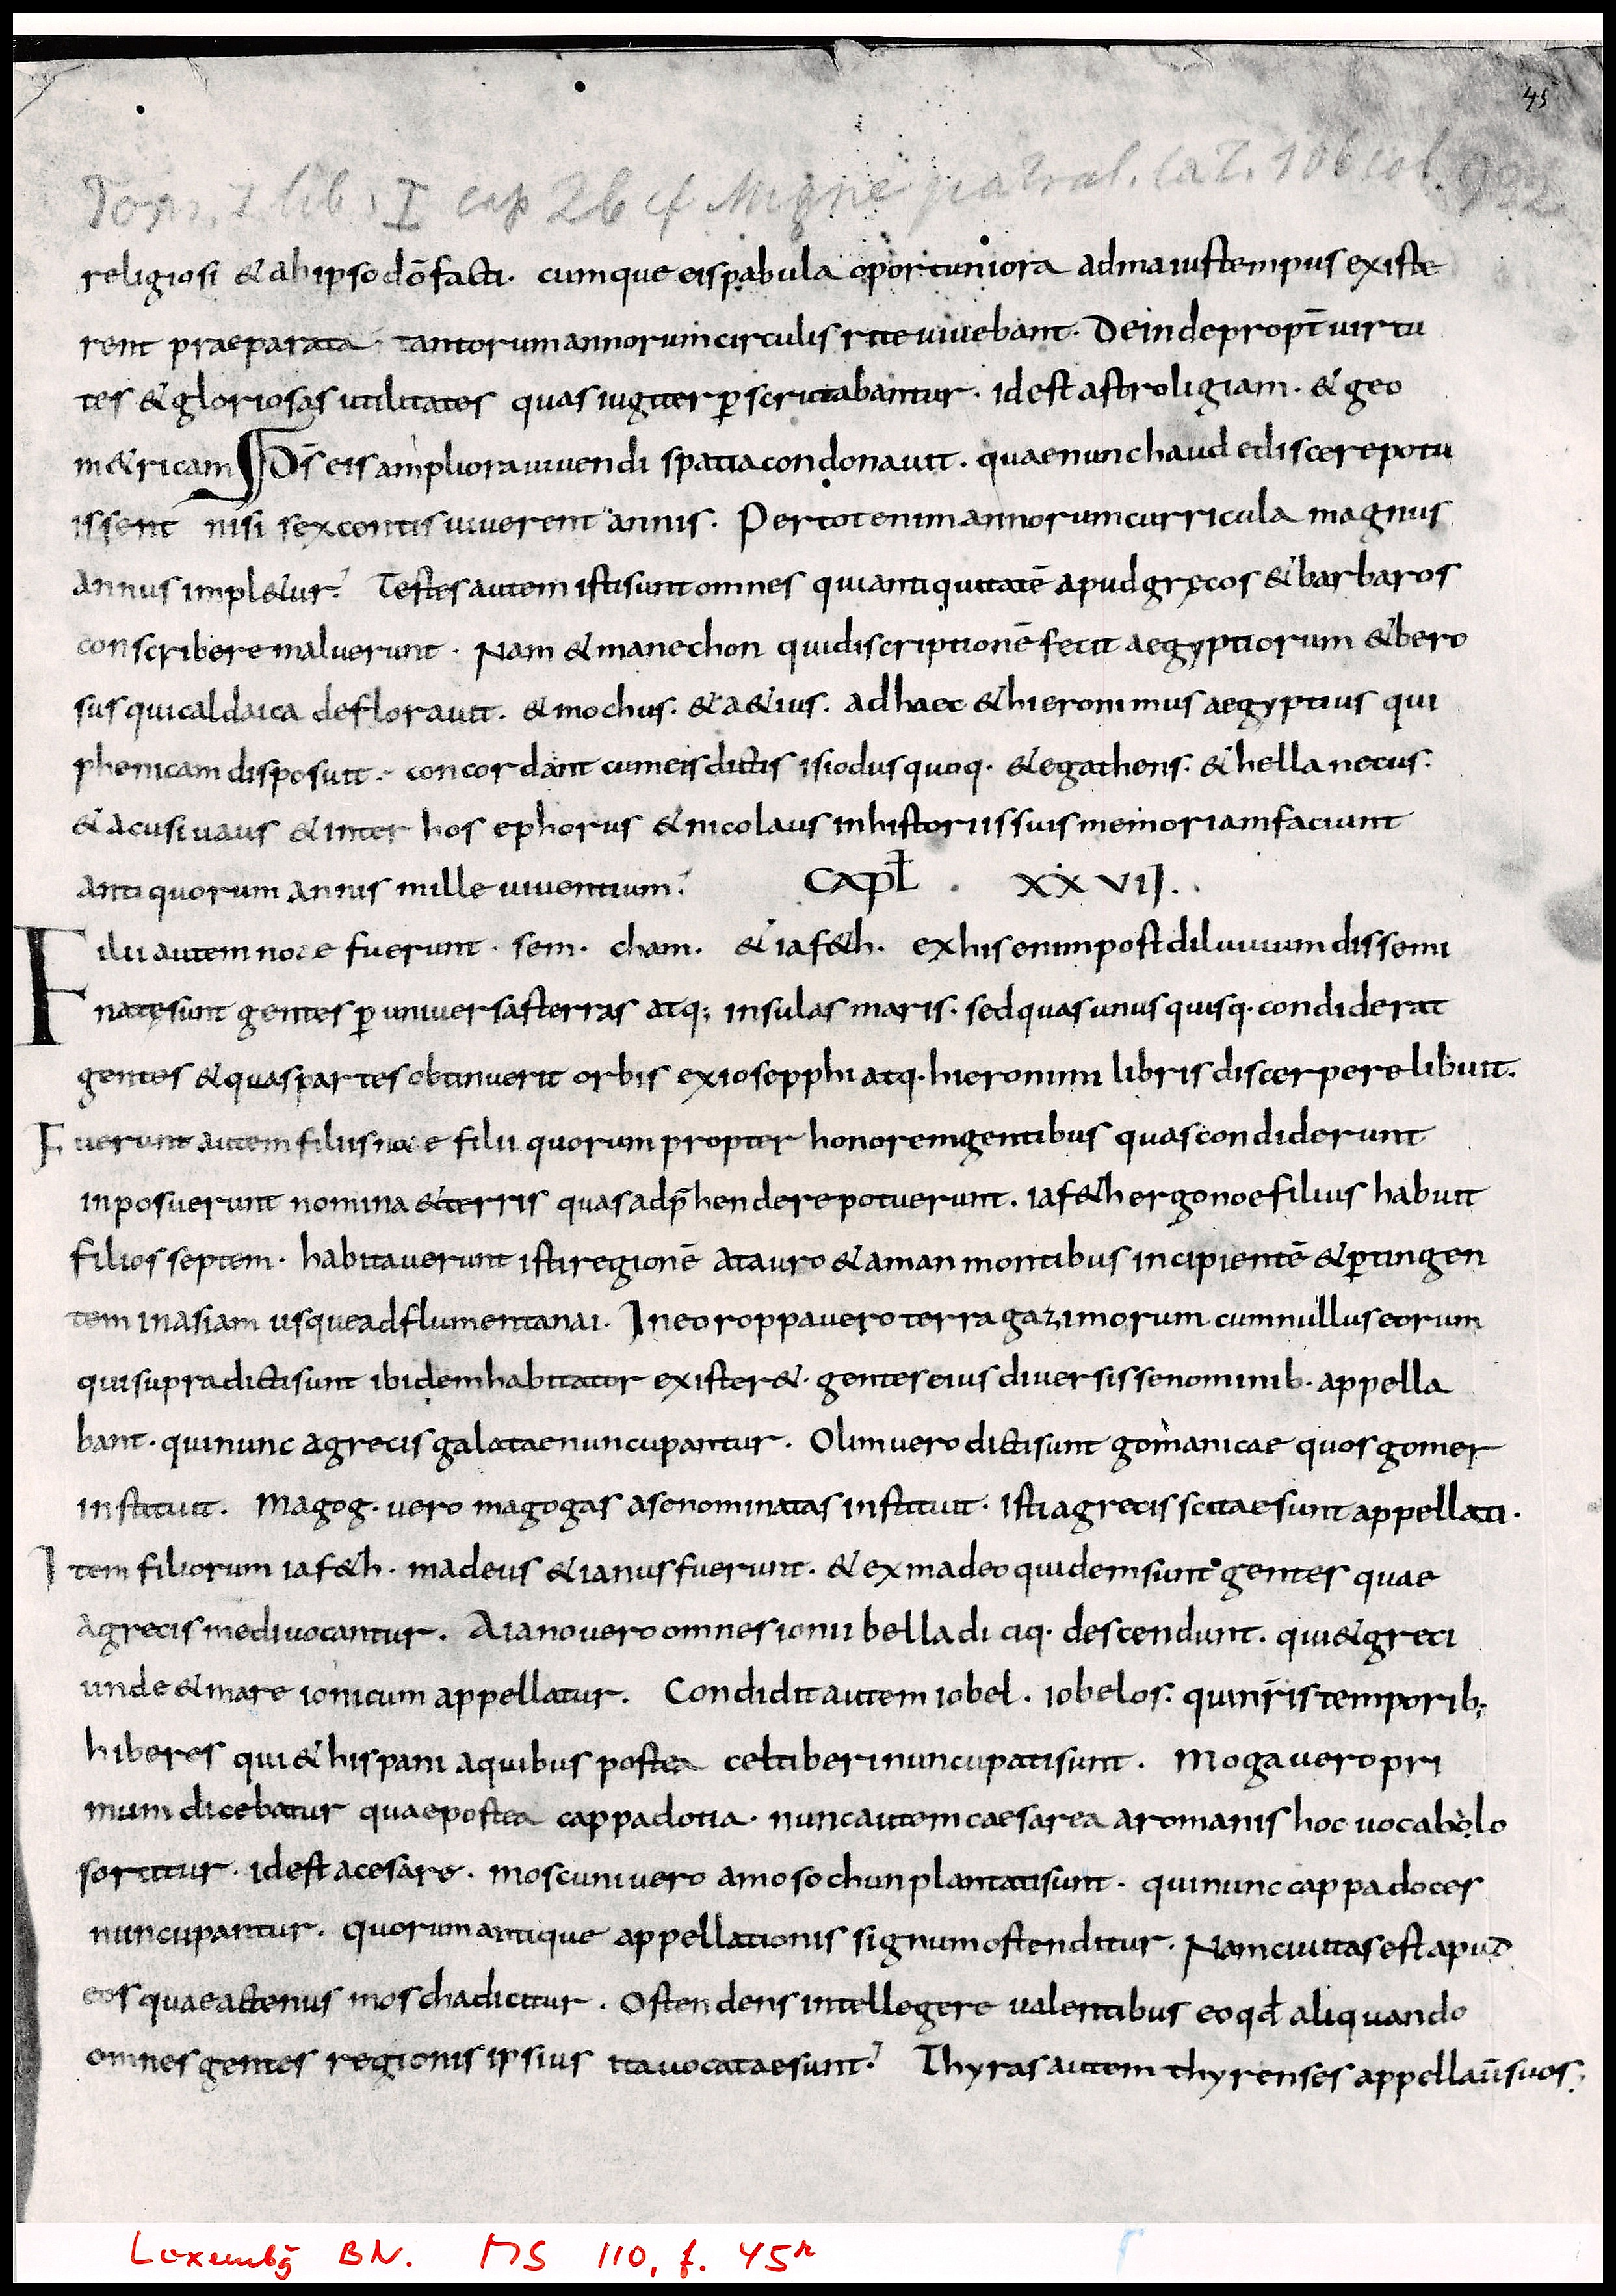 45
Tom. I lib. I cap 26 cf Migne patrol. lat. 106 col. 922
religiosi & ab ipso dō facti. cumque eis pabula oportuniora ad maius tempus existe
rent praeparata tantorum annorum circulis rite vivebant. Deinde propt̄ virtu
tes & gloriosas utilitates quas iugiter p̱ scrutabantur. id est astroligiam. & geo
m&ricam D̄s eis ampliora vivendi spatia condonavit. quae nunc haud ediscere potu
issent nisi sexcentis viverent annis. Per tot enim annorum curricula magnus
annus impl&ur. Testes autem isti sunt omnes qui antiquitatē apud gręcos & barbaros
conscribere maluerunt. Nam & manechon qui discriptionē fecit aegyptiorum & bero
sus qui caldaica defloravit. & mochus. & a&ius. ad haec & hieronimus aegyptius qui
phenicam disposuit. concordant cum eis dictis isiodus quoq. & egathens. & hellanecus.
& acusivaus & inter hos ephorus & nicolaus in historiis suis memoriam faciunt
antiquorum annis mille viventium. CAPŁ. XXVII.
Filii autem noae fuerunt. sem. cham. & iaf&h. ex his enim post diluvium dissemi
natę sunt gentes p̱ universas terras atq; insulas maris. sed quas unusquisq. condiderat
gentes & quas partes obtinuerit orbis ex iosepphi atq. hieronimi libris discerpere libuit.
Fuerunt autem filiis noae filii quorum propter honorem gentibus quas condiderunt
inposuerunt nomina & terris quas adp̄hendere potuerunt. iaf&h ergo noe filius habuit
filios septem. habitaverunt isti regionē a tauro & aman montibus incipientē & p̱tingen
tem in asiam usque ad flumen tanai. In eoroppa vero terra gazimorum cum nullus eorum
qui supra dicti sunt ibidem habitator exister&. gentes eius diversis se nominib. appella
bant. qui nunc a grecis galatae nuncupantur. Olim vero dicti sunt gomanicae quos gomer
instituit. Magog. vero magogas a se nominatas instituit. isti a grecis scitae sunt appellati.
Item filiorum iaf&h. madeus & ianus fuerunt. & ex madeo quidem sunt gentes quae
a grecis medi vocantur. A iano vero omnes ionii belladi ciq. descendunt. qui & greci
unde & mare ionicum appellatur. Condidit autem iobel. iobelos. qui nr̄is temporib;
hiberes qui & hispani a quibus postea celtiberi nuncupati sunt. Moga vero pri
mum dicebatur quae postea cappadotia. nunc autem caesarea a romanis hoc vocabolo
soritur. id est a cesare. moscuni vero a mosochun plantati sunt. qui nunc cappadoces
nuncupantur. quorum antique appellationis signum ostenditur. Nam civitas est apud
eos quae actenus moscha dicitur. Ostendens intellegere valentibus eo qđ aliquando
omnes gentes regionis ipsius ita vocatae sunt. Thyras autem thyrenses appellav̄ suos.
Luxembg BN. MS 110, f. 45r